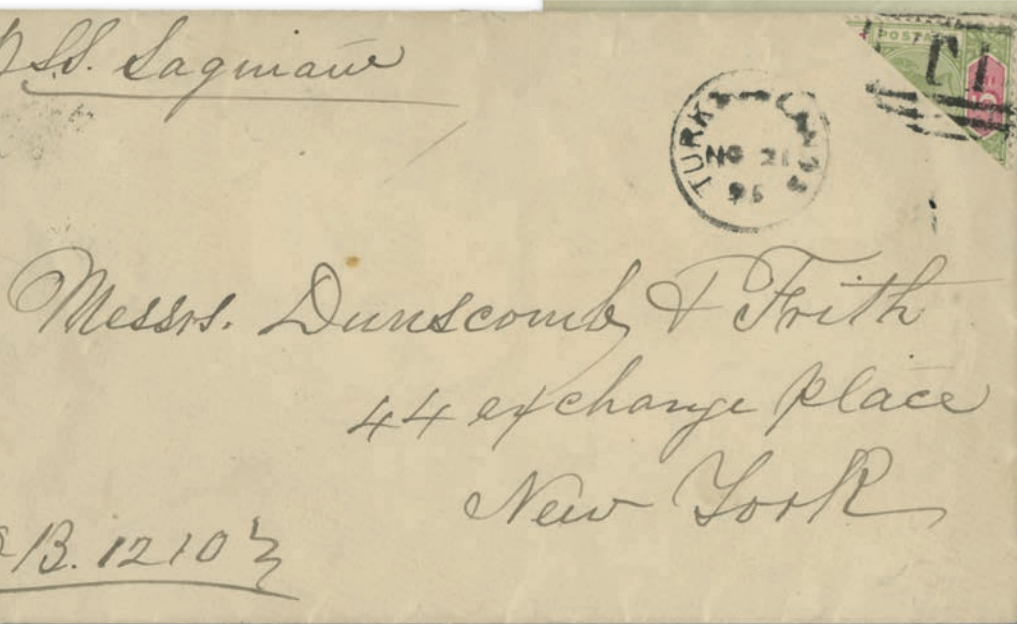 SS. Saginaw
POSTAGE
TURKS ISLANDS
NO 21
95
Messrs. Dunscomb & Frith
44 exchange place
New York
B. 1210